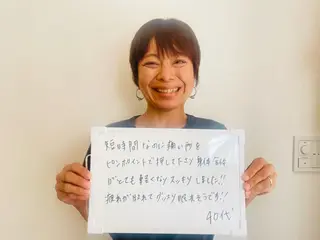 短時間なのに痛い所を
ピンポイントで押して下さり身体全体
がとても軽くなりスッキリしました!!
疲れが取れてグッスリ眠れそうです!!
40代